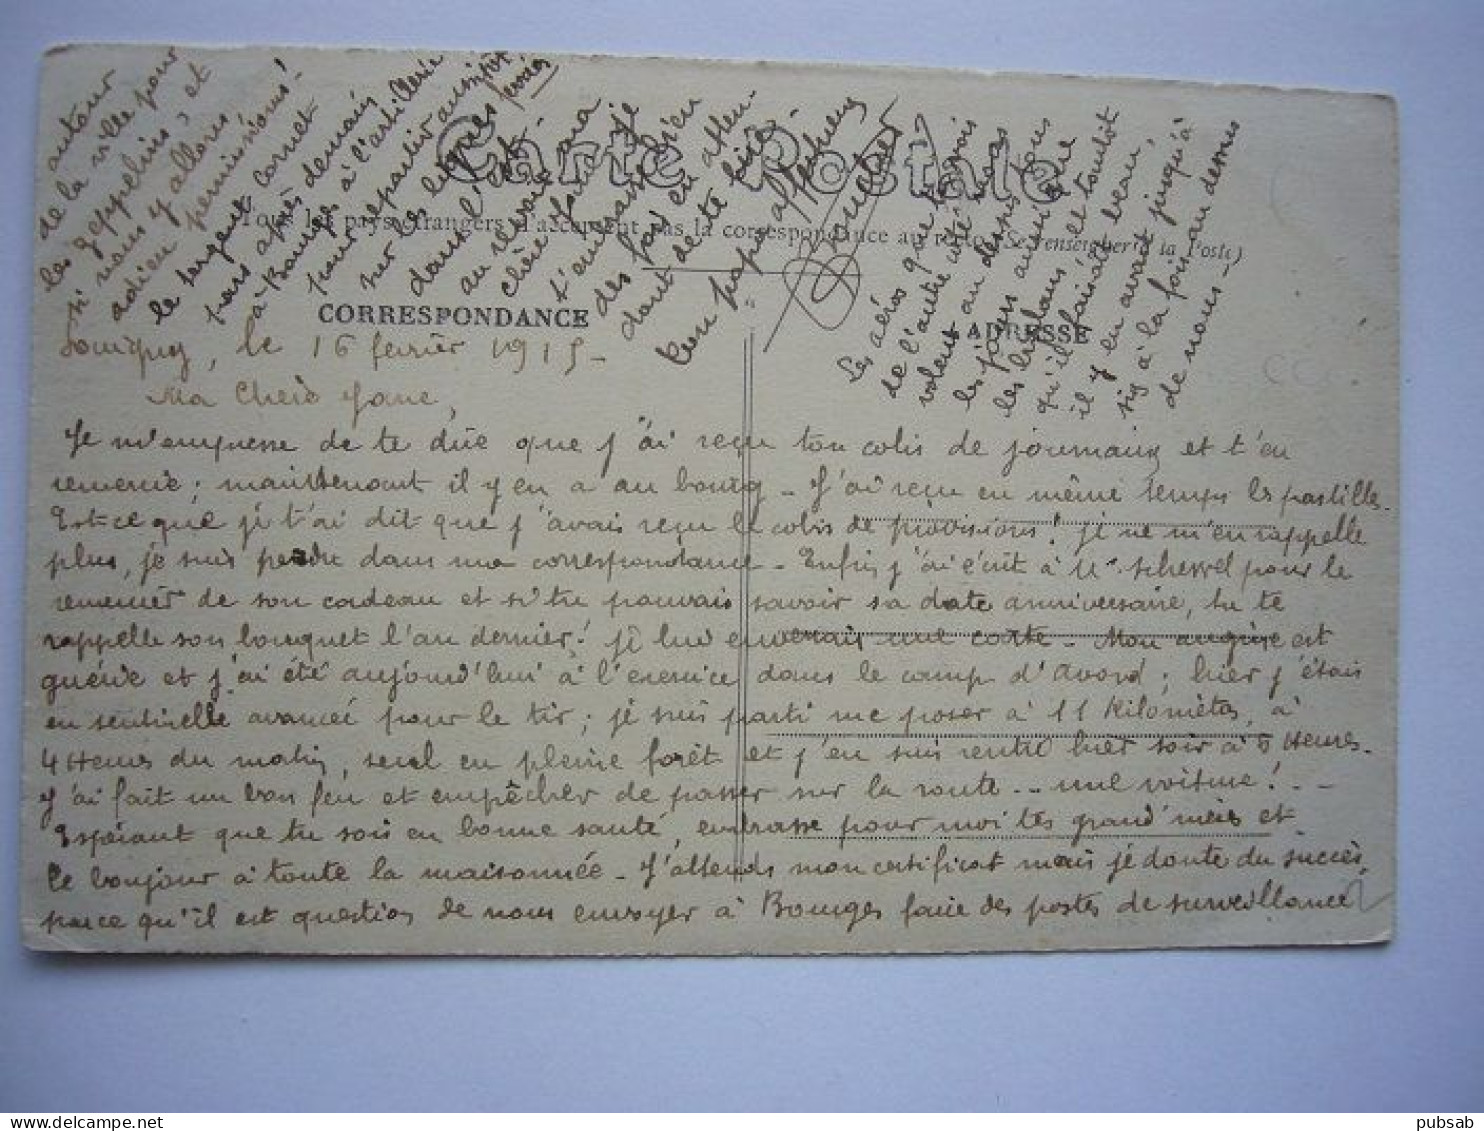 Carte Postale
Tous les pays étrangers n'acceptent pas la correspondance au recto (Se renseigner à la Poste)
CORRESPONDANCE
ADRESSE
le 16 février 1915 -
Ma Chère Jane,
Je m'empresse de te dire que j'ai reçu ton colis de journaux et t'en
remercie; maintenant il y en a au bourg - J'ai reçu en même temps les pastilles.
Est-ce que je t'ai dit que j'avais reçu le colis de provisions! je ne m'en rappelle
plus, je suis perdu dans ma correspondance - Enfin j'ai écrit à Mr pour le
remercier de son cadeau et si tu pouvais savoir sa date anniversaire, tu te
rappelle son bouquet l'an dernier! je lui enverrais une carte - Mon angine est
guérie et j'ai été aujourd'hui à l'exercice dans le camp d'Avord; hier j'étais
en sentinelle avancée pour le tir; je suis parti me poser à 11 Kilomètres, à
4 Heures du matin, seul en pleine forêt et j'en suis rentré hier soir à 5 Heures.
J'ai fait un bon feu et empêcher de passer sur la route... une voiture!...
Espérant que tu sois en bonne santé, embrasse pour moi tes grand'mères et
le bonjour à toute la maisonnée - J'attends mon certificat mais je doute du succès
parce qu'il est question de nous envoyer à Bourges faire des postes de surveillance
autour
de la ville pour
les zeppelins, et
si nous y allons
adieu permissions!
le sergent Cornet
pars après demain
à Bourges à l'artillerie
pour repartir aussitôt
sur les lignes
dans l'Est -
au revoir ma
chère Jane je
t'embrasse bien
des fois en atten-
dant de te lire -
Ton papa affectueux
Les aéros que tu vois
de l'autre côté nous
volent au dessus tous
les jours aussi que
les biplans, et tantôt
qu'il faisait beau,
il y en avait jusqu'à
six à la fois au dessus
de nous -